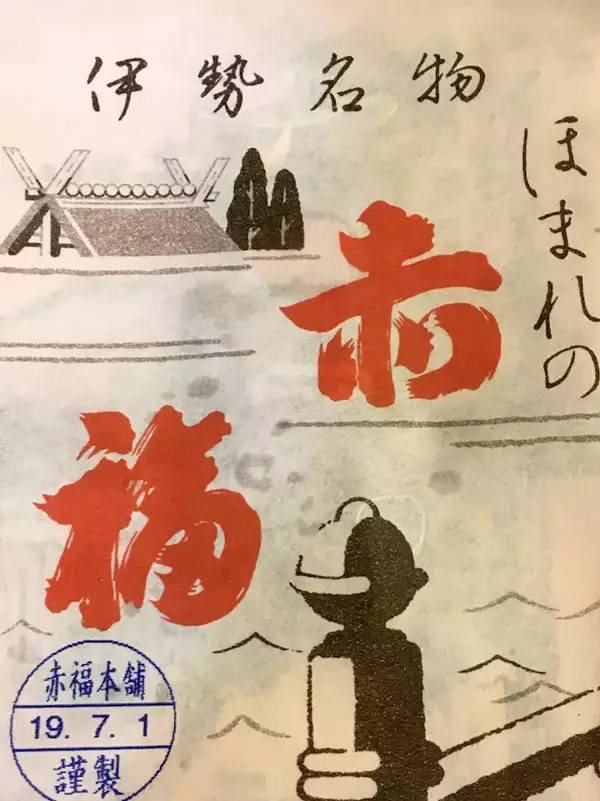 伊勢名物
ほまれの
赤福
赤福本舗
19. 7. 1
謹製